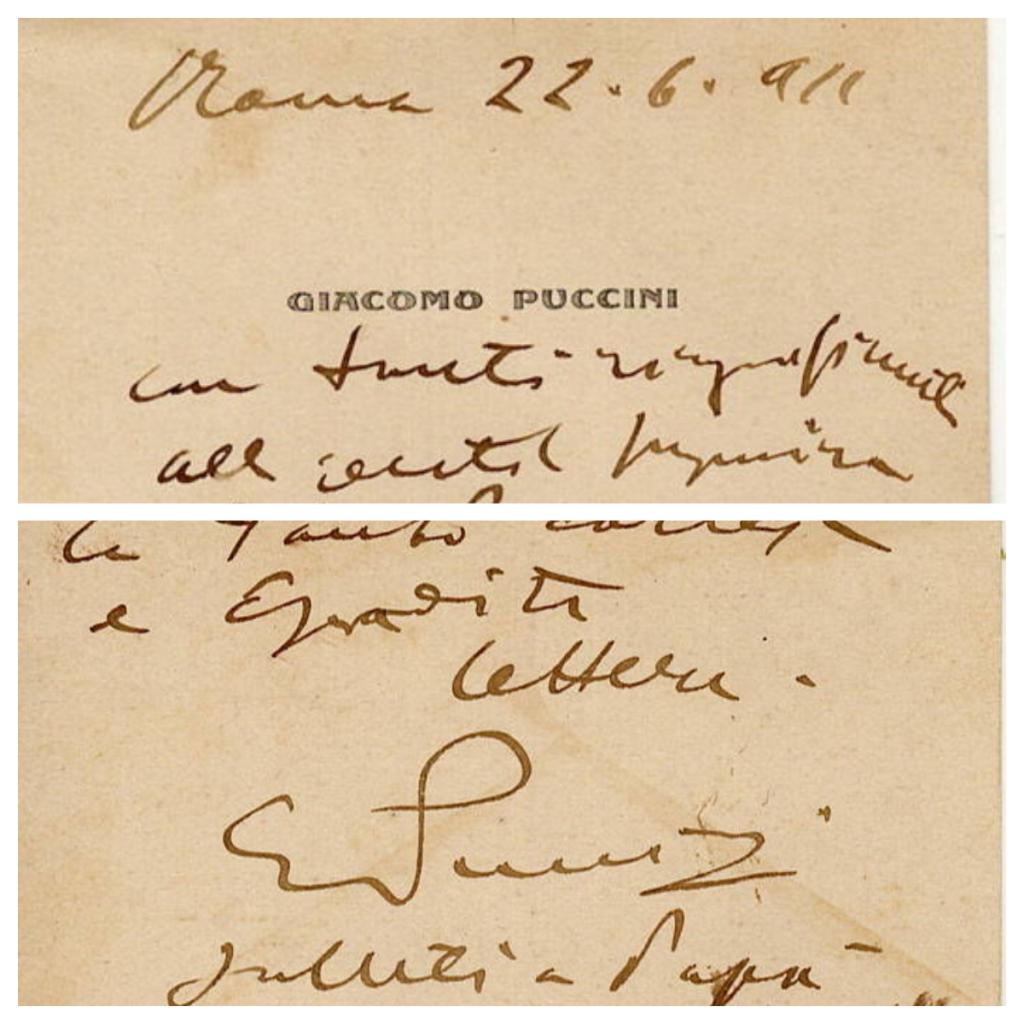 Roma 22.6.911
GIACOMO PUCCINI
con tanti ringraziamenti
alla gentil signorina
la tanto cortese
e gradita
lettera.
G Puccini
saluti a Papà